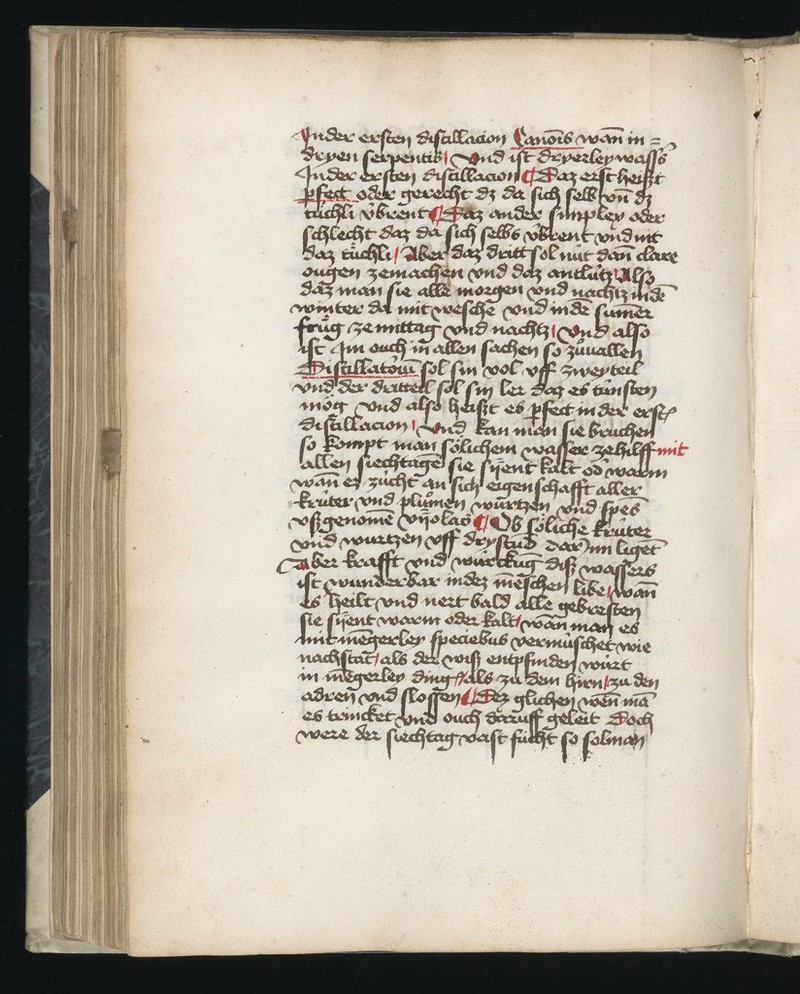 In der ersten distillacion Canoīs wañ in =
dryen serpentis / Vnd ist dryerley wass's
In der ersten distillacion ¶ Daz erst heiszt
p̲fect oder gerecht dz da sich selb vñ dz
tüchli v̊brent ¶ Daz ander simpley oder
schlecht daz da sich selbs v̊brent vnd nit
daz tüchli / Aber daz dritt sol nüt dañ clare
ougen zemachen vnd daz antlütz / Alsz
daz man sie alle morgen vnd nachtz in dē
winter da mit wesche vnd in dē sumer
früg ze mittag vnd nachtz / Vnd also
ist Im ouch in allen sachen so zůuallen
Distillatoriū sol sin vol vff zwey teil
vnd der dritteil sol sin ler daz es tünsten
mög vnd also heiszt es p̲fect in der erstē
distillacion / Vnd kan man sie bruchen
so kompt man sölichem wasser ze hilff mit
allen siechtagē sie sÿent kalt od warm
wañ ez zücht an sich eigenschafft aller
krüter vnd plůmen würtzen vnd spēs
vszgenomē vÿolas ¶ Ob söliche krüter
vnd wurtzen vff drystūd dar Inn ligēt
Aber krafft vnd würckūg disz wassers
ist wunderbar in dez mēschen libe / wañ
es heilt vnd nert bald alle gebresten
sie sÿent warm oder kalt / wañ man es
mit mēgerley speciebus vermüschet wie
nachstāt / als der wisz entpfinden würt
in mēgerley ding / als zu dem hirn / zu den
adren vnd flossen ¶ Dez glichen wēn mā
es trincket vnd ouch daruff geleit Doch
were der siechtag vast fücht so sol man